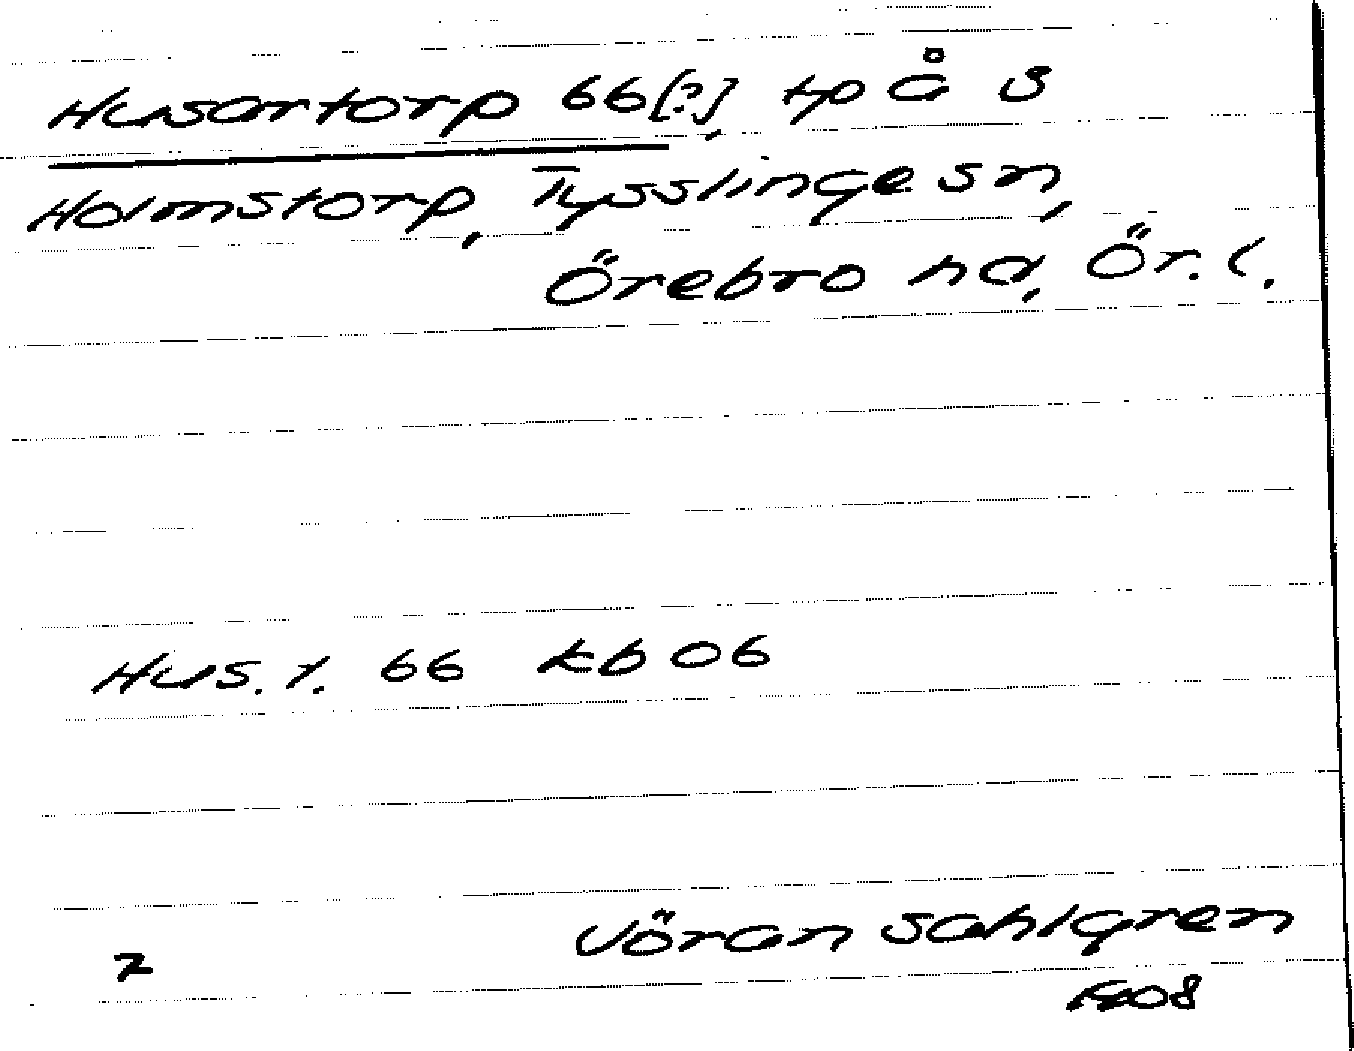 Husartorp 66[?], tp å S
Holmstorp, Tysslinge sn,
Örebro hd, Ör. l.
Hus. t. 66 kb 06
Jöran Sahlgren
1908